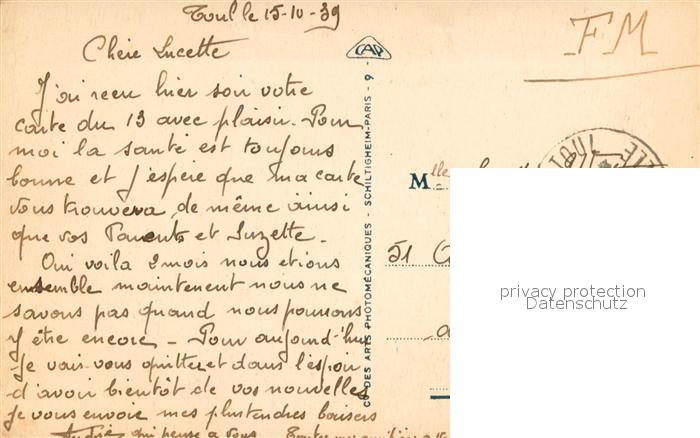 Toul le 15-10-39
Chère Lucette
J'ai reçu hier soir votre
carte du 13 avec plaisir. Pour
moi la santé est toujours
bonne et j'espère que ma carte
vous trouvera de même ainsi
que vos Parents et Suzette.
Oui voila 2 mois nous etions
ensemble maintenent nous ne
savons pas quand nous pourrons
y être encore - Pour aujourd'hui
je vais vous quitter et dans l'espoir
d'avoir bientôt de vos nouvelles
je vous envoie mes plus tendres baisers
qui pense a vous
CAP
CIE DES ARTS PHOTOMÉCANIQUES - SCHILTIGHEIM-PARIS - 9 -
FM
TOUL
Mlle
51
privacy protection
Datenschutz